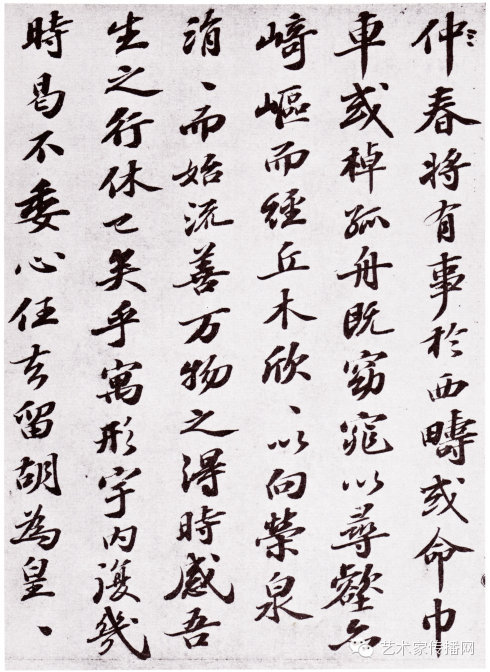 仲春将有事於西疇或命巾
車或棹孤舟既窈窕以尋壑亦
崎嶇而經丘木欣、以向榮泉
涓、而始流善万物之得時感吾
生之行休已矣乎寓形宇内復幾
時曷不委心任去留胡為皇、
艺术家传播网